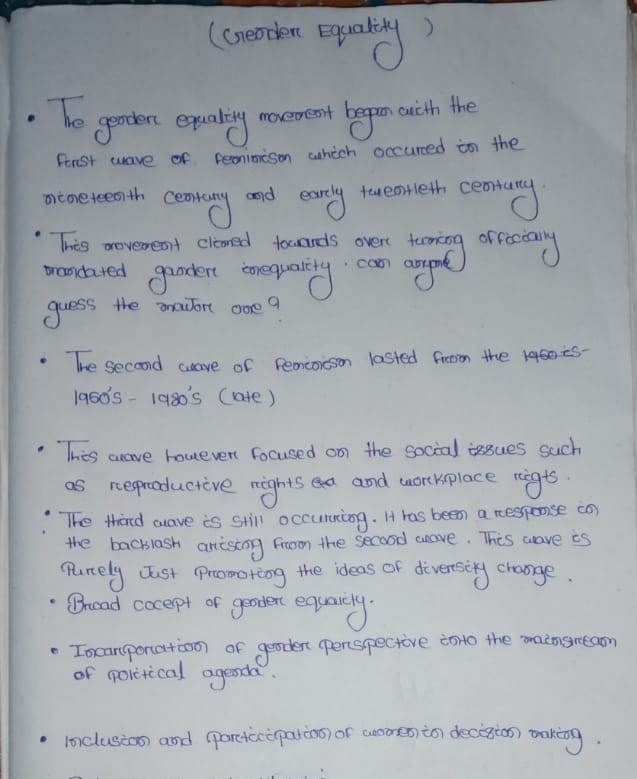 (Gender Equality)
• The gender equality movement began with the
first wave of feminism which occured in the
nineteenth century and early twentieth century.
• This movement climed towards over turning officially
mandated gander inequality. can anyone
guess the one?
• The second wave of feminism lasted from the 1960 is-
1960's - 1980's (late)
• This wave however focused on the social issues such
as reproductive rights and workplace rigts.
• The third wave is still occurring. It has been a response in
the backlash arising from the second wave. This wave is
Purely Just Promoting the ideas of diversity change.
• Broad cocept of gender equaicty.
• Incorporation of gender perspective into the mainstream
of political agenda.
• Inclusion and participation of women in decision making.